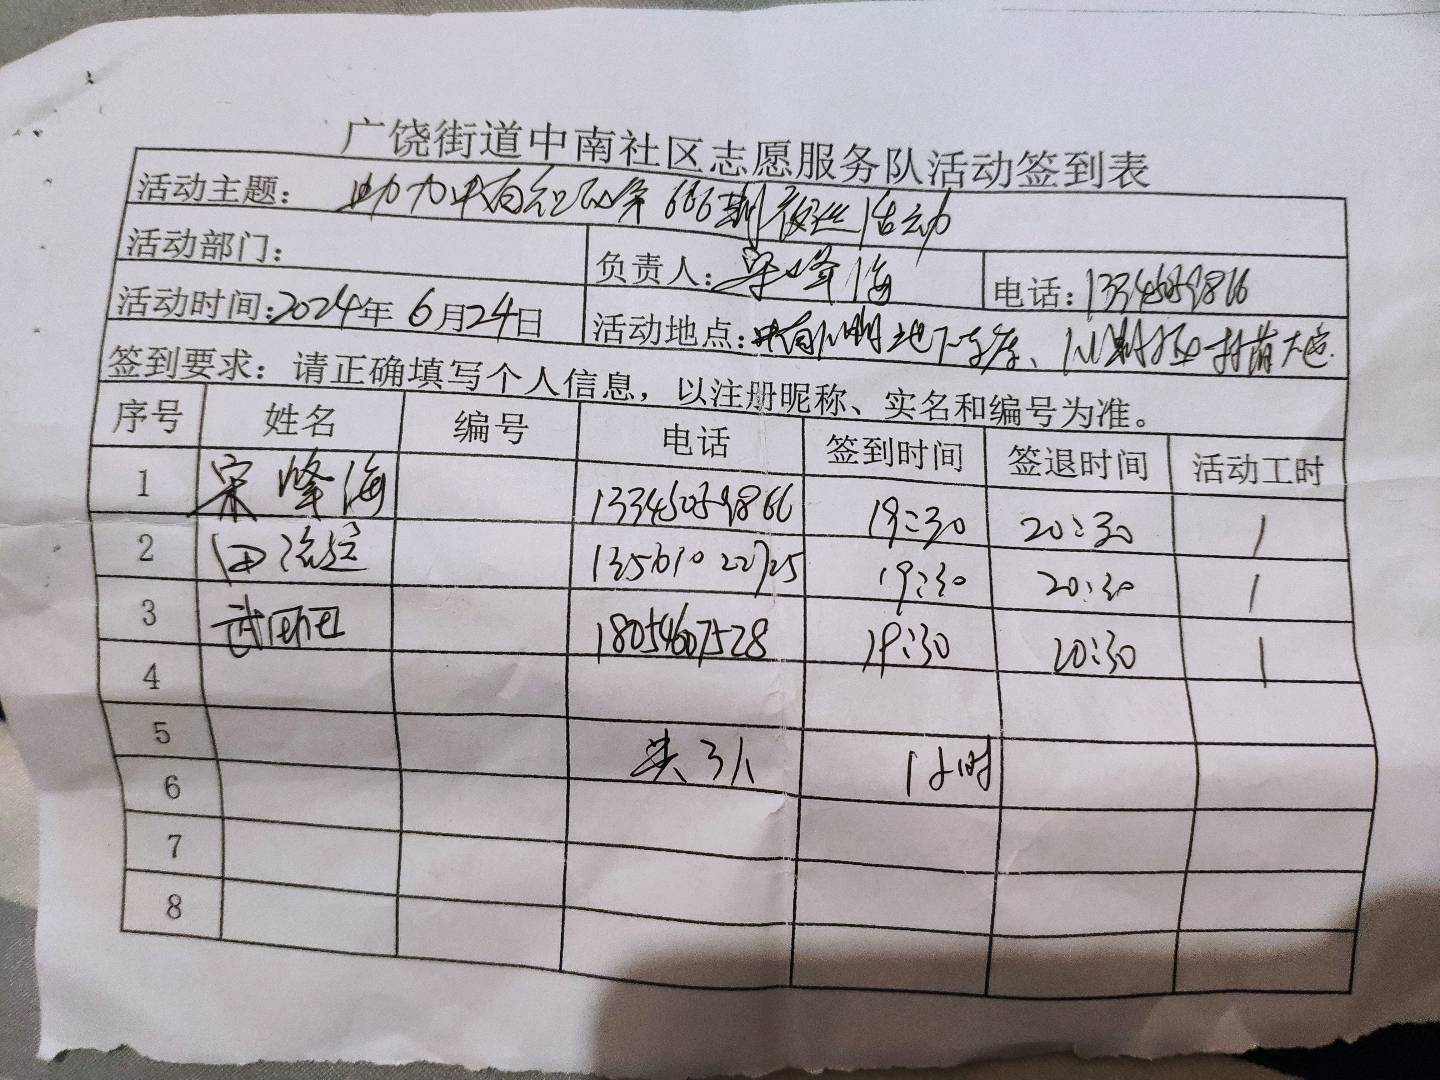 广饶街道中南社区志愿服务队活动签到表
活动主题： 助力中南社区第666期夜巡活动
活动部门： 负责人：宋峰海 电话：13345059866
活动时间：2024年6月24日 活动地点：中南 地下车库、
签到要求：请正确填写个人信息，以注册昵称、实名和编号为准。
序号 姓名 编号 电话 签到时间 签退时间 活动工时
1 宋峰海 13345059866 19:30 20:30 1
2 田 13561022725 19:30 20:30 1
3 武 18054607528 19:30 20:30 1
4
5 共3人 1小时
6
7
8